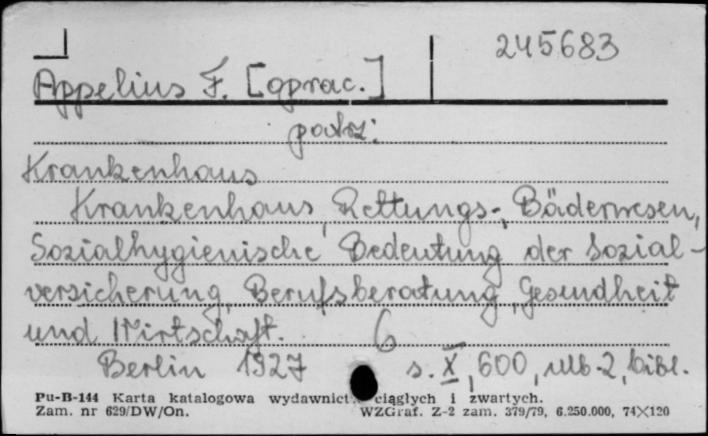 245683
Appelius F. [oprac.]
patrz:
Krankenhaus
Krankenhaus, Rettungs-, Bäderwesen,
Sozialhygienische Bedeutung der Sozial-
versicherung, Berufsberatung, Gesundheit
und Wirtschaft. 6
Berlin 1927 s. X, 600, nlb. 2, bibl.
Pu-B-144 Karta katalogowa wydawnict ciągłych i zwartych.
Zam. nr 629/DW/On. WZGraf. Z-2 zam. 379/79, 6.250.000, 74×120